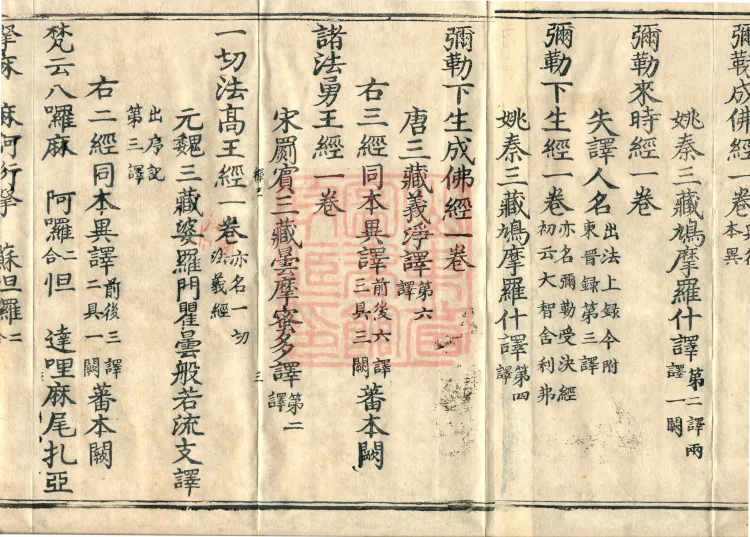 彌勒成佛經一卷
本異
姚秦三藏鳩摩羅什譯第二譯兩譯一闕
彌勒來時經一卷
失譯人名出法上錄今附東晉錄第三譯
彌勒下生經一卷亦名彌勒受決經初云大智舍利弗
姚秦三藏鳩摩羅什譯第四譯
彌勒下生成佛經一卷
唐三藏義淨譯第六譯
右三經同本異譯前後六譯三具三闕蕃本闕
諸法勇王經一卷
宋罽賓三藏曇摩蜜多譯第二譯
三
一切法高王經一卷亦名一切法義經
元魏三藏婆羅門瞿曇般若流支譯
出序記第三譯
右二經同本異譯前後三譯二具一闕蕃本闕
梵云八囉麻 阿囉二合怛 達哩麻尾扎亞
拏麻 麻訶衍拏 蘇怛羅二